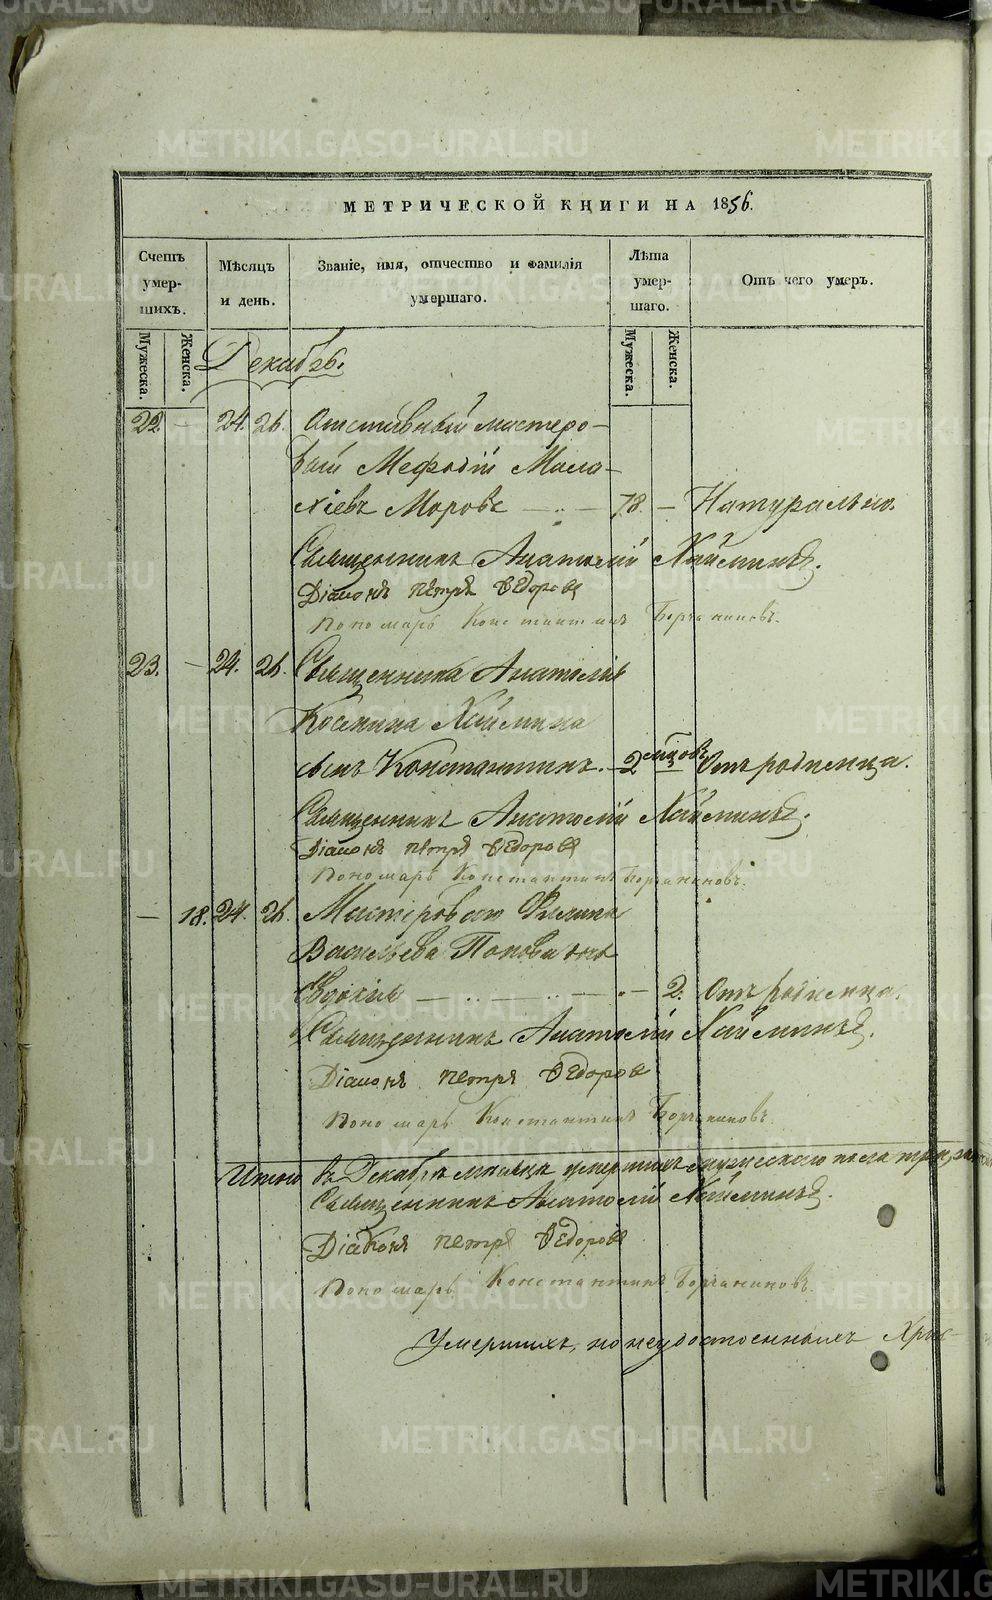 МЕТРИЧЕСКОЙ КНИГИ НА 1856.
Счетъ умер- шихъ.
Мѣсяцъ и день.
Званіе, имя, отчество и фамилія умершаго.
Лѣта умер- шаго.
Отъ чего умеръ.
Мужеска.
Женска.
Мужеска.
Женска.
Декабрь.
22. — 24. 26. Отставный мастеро-
вый Мефодій Мала-
хіевъ Моровъ — 78. — Натурально.
Священникъ Анатолій Хайминъ.
Діаконъ Петръ Ѳедоровъ
Пономарь Константинъ
23. — 24. 26. Священника Анатолія
Косьмина Хаймина
сынъ Константинъ. — 2 мѣсяцовъ Отъ родимца.
Священникъ Анатолій Хайминъ.
Діаконъ Петръ Ѳедоровъ
Пономарь Константинъ
— 18. 24. 26. Мастероваго Филипа
Васильева Попова дочь
Евдокія — 2. Отъ родимца.
Священникъ Анатолій Хайминъ.
Діаконъ Петръ Ѳедоровъ
Пономарь Константинъ
Итого въ Декабрѣ мѣсяцѣ умершихъ мужескаго пола три,
Священникъ Анатолій Хайминъ.
Діаконъ Петръ Ѳедоровъ
Пономарь Константинъ
Умершихъ, но неудостоенныхъ Хрис-
METRIKI.GASO-URAL.RU